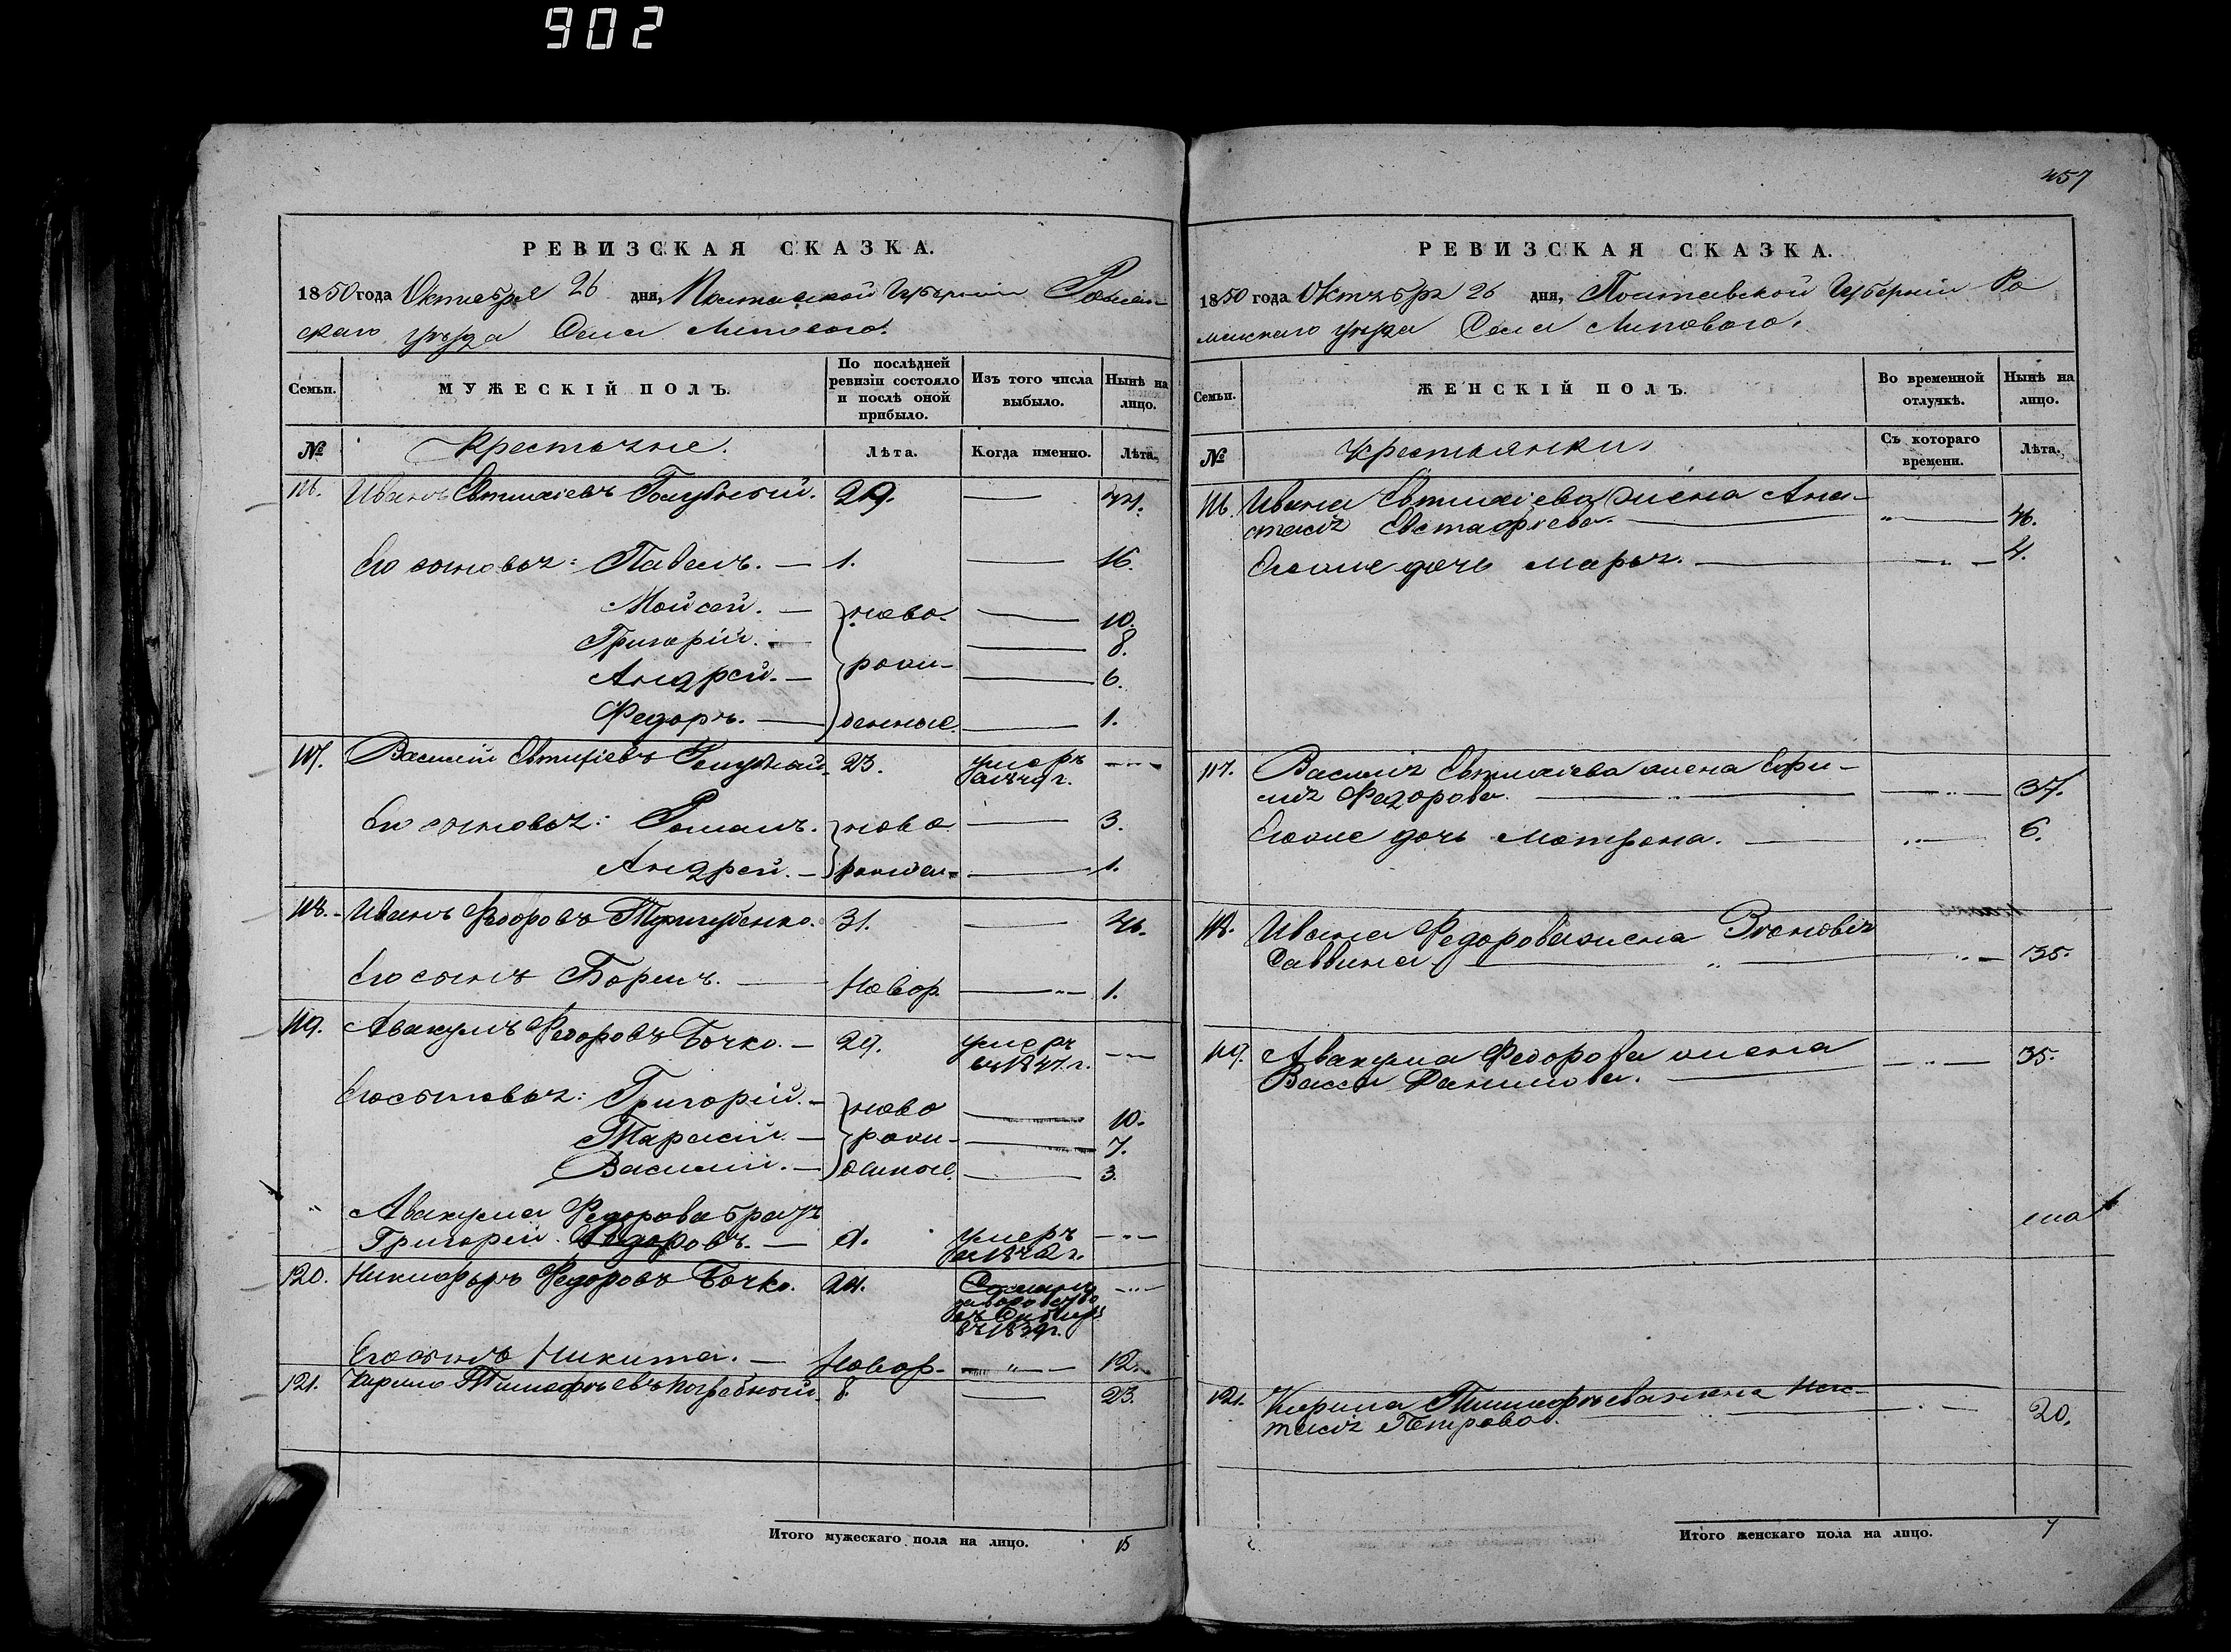 902
457
РЕВИЗСКАЯ СКАЗКА.
1850 года Октября 26 дня, Полтавской Губерніи Ромен-
скаго уѣзда Села Липоваго.
Семьи.
МУЖЕСКІЙ ПОЛЪ.
По послѣдней ревизіи состояло и послѣ оной прибыло.
Изъ того числа выбыло.
Нынѣ на лицо.
№
Крестьяне.
Лѣта.
Когда именно.
Лѣта.
116. Иванъ Евтихіевъ 29.
Его сыновья: Павелъ. 1. 16.
Мойсей. ново- 10.
Григорій. 8.
Андрей. рож- 6.
Федоръ. денные. 1.
117. Василій Евтихіевъ 23. умеръ
Его сыновья: Романъ. ново 3.
Андрей. рожден 1.
118. Иванъ Федоровъ 31.
Его сынъ Новор. 1.
119. Авакумъ Федоровъ Бочко. 29. умеръ
въ 1847 г.
Его сыновья: Григорій. ново 10.
Тарасій. рож- 7.
Василій. денные. 3.
Авакума Федорова братъ
Григорій Федоровъ. умеръ
120. Никифоръ Федоровъ Бочко. Сосланъ
въ 1839 г.
Его сынъ Никита. Новор. 12.
121. Кирило Тимофѣевъ Погребный. 8. 23.
Итого мужескаго пола на лицо. 15
РЕВИЗСКАЯ СКАЗКА.
1850 года Октября 26 дня, Полтавской Губерніи Ро
менскаго уѣзда Села Липоваго.
Семьи.
ЖЕНСКІЙ ПОЛЪ.
Во временной отлучкѣ.
Нынѣ на лицо.
№
Крестьянки
Съ котораго времени.
Лѣта.
116. Ивана Евтихіева жена Ана-
стасія Евстафіева.
Егоже дочь Марья. 4.
117. Василія Евтихіева жена Ефи-
мія Федорова. 37.
Егоже дочь Матрона. 6.
118. Ивана Федорова жена Зѣновія
Саввина 35.
119. Авакума Федорова жена
Васса Данилова. 35.
120.
121. Кирила Тимофѣева жена Нас-
тасія Петрова. 20.
Итого женскаго пола на лицо. 7